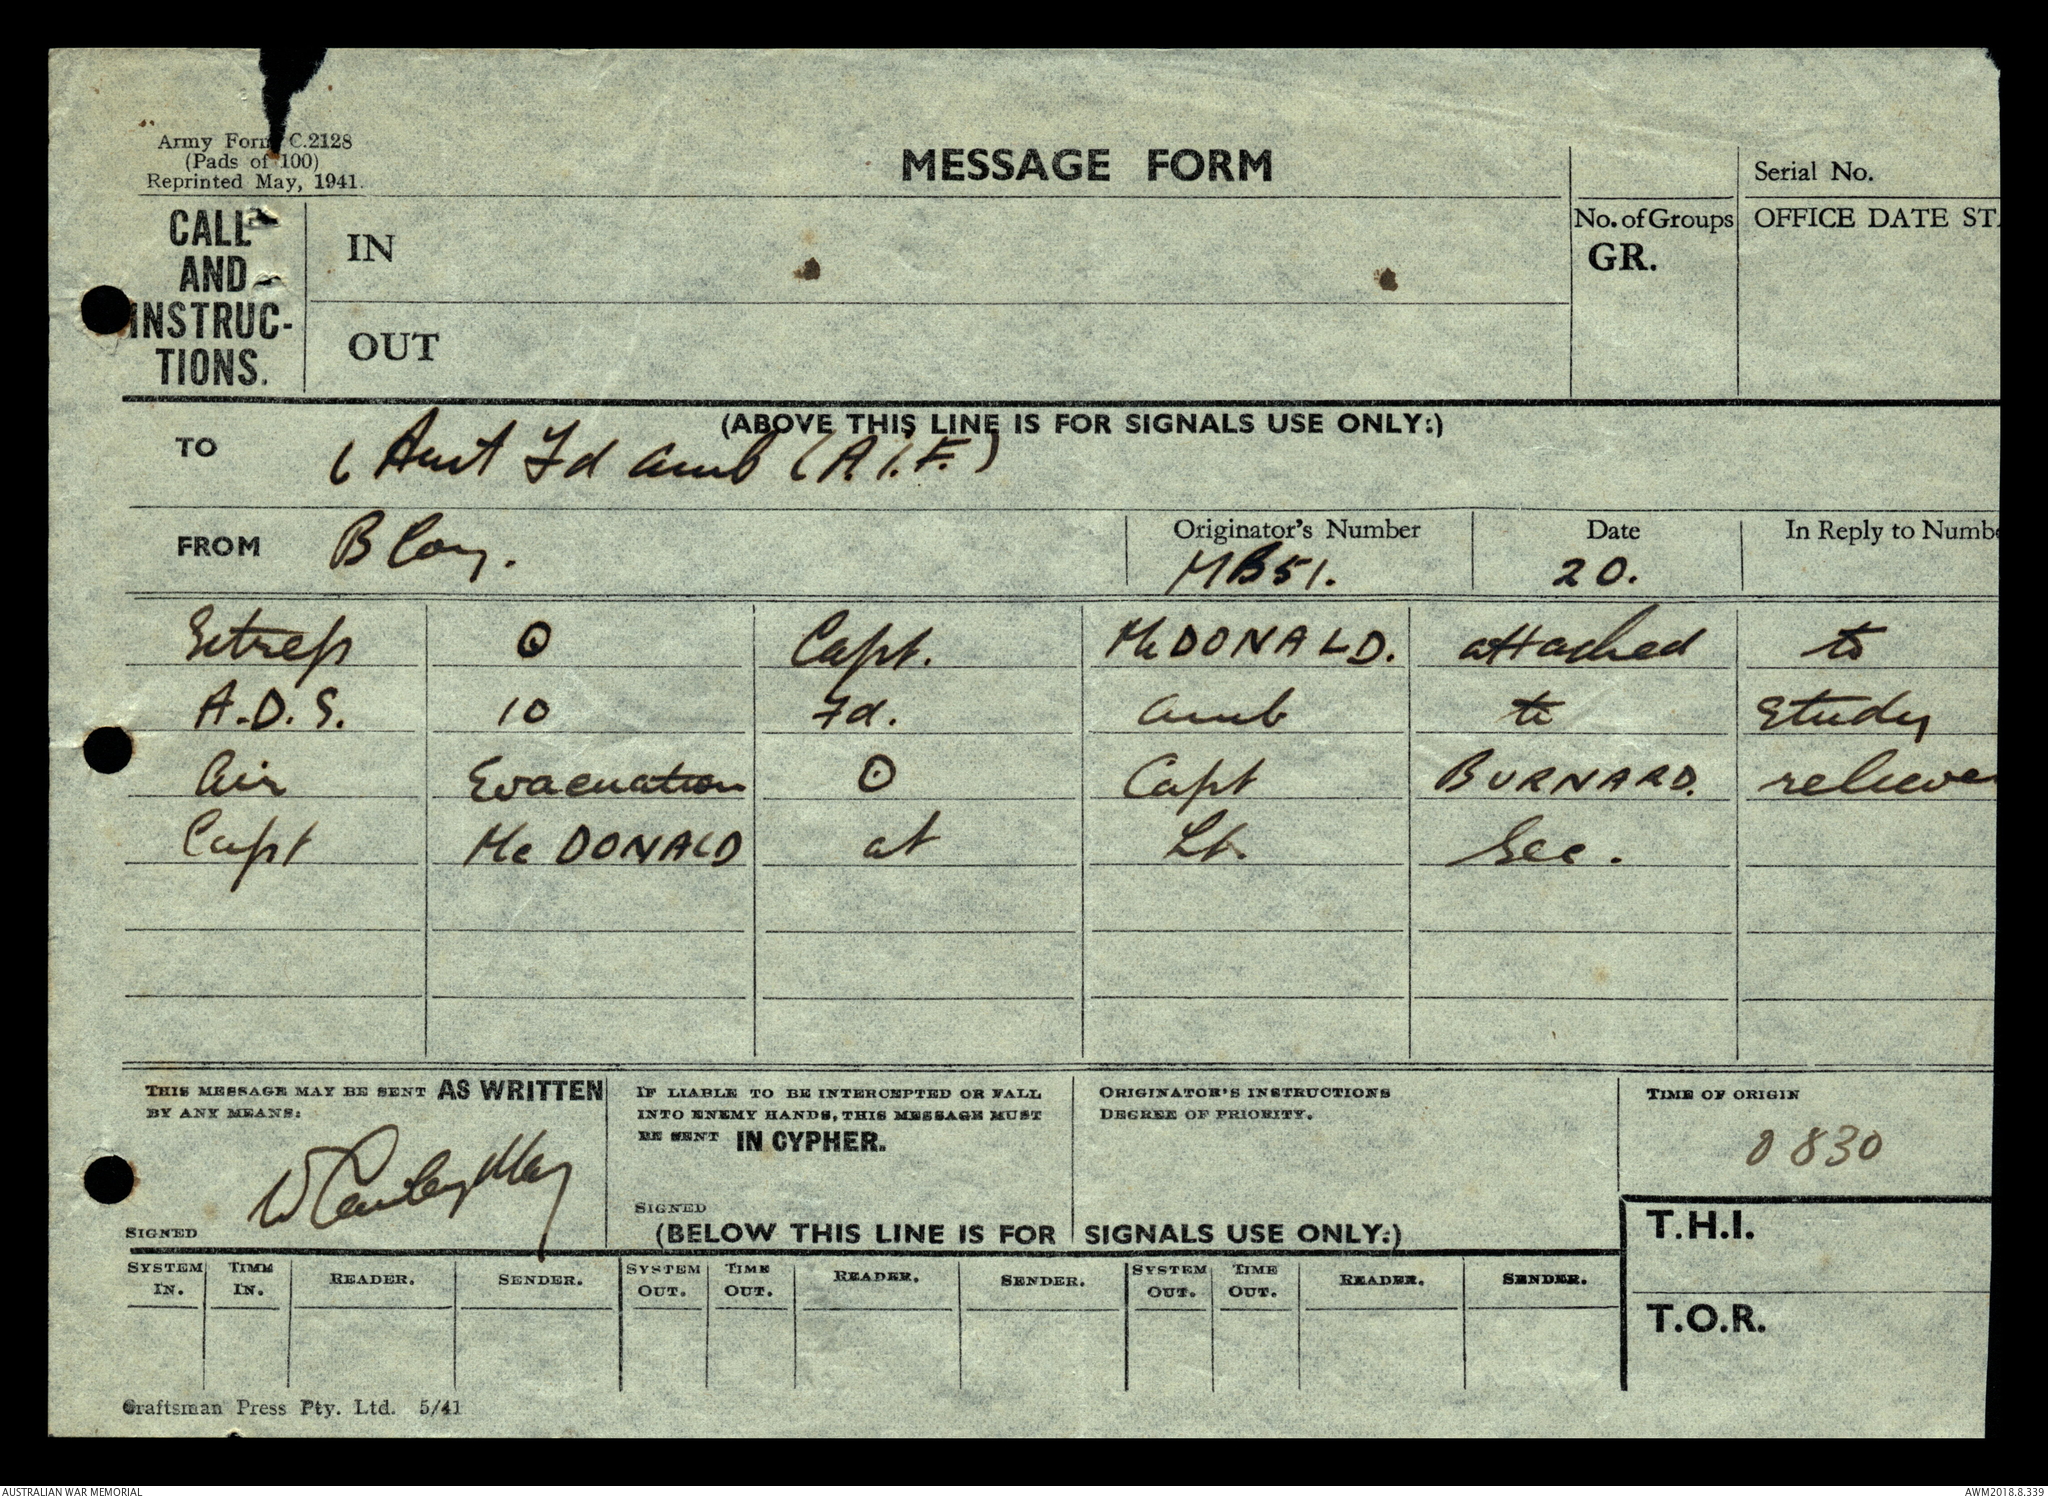 Army Form C.2128
(Pads of 100)
Reprinted May, 1941.
MESSAGE FORM
Serial No.
CALL AND INSTRUC- TIONS.
IN
OUT
No. of Groups
GR.
OFFICE DATE STA
(ABOVE THIS LINE IS FOR SIGNALS USE ONLY.)
TO 6 Aust Fd Amb (A.I.F.)
FROM B Coy.
Originator's Number MB51.
Date 20.
In Reply to Numbe
Sitrep ⊙ Capt. McDONALD. attached to
A.D.S. 10 Fd. Amb to study
Air Evacuation ⊙ Capt BURNARD. relieve
Capt McDONALD at Lt. Sec.
THIS MESSAGE MAY BE SENT AS WRITTEN
BY ANY MEANS:
SIGNED
IF LIABLE TO BE INTERCEPTED OR FALL
INTO ENEMY HANDS, THIS MESSAGE MUST
BE SENT IN CYPHER.
SIGNED
ORIGINATOR'S INSTRUCTIONS
DEGREE OF PRIORITY.
TIME OF ORIGIN
0830
(BELOW THIS LINE IS FOR SIGNALS USE ONLY.)
T.H.I.
T.O.R.
SYSTEM IN. TIME IN. READER. SENDER. SYSTEM OUT. TIME OUT. READER. SENDER. SYSTEM OUT. TIME OUT. READER. SENDER.
Craftsman Press Pty. Ltd. 5/41
AUSTRALIAN WAR MEMORIAL
AWM2018.8.339